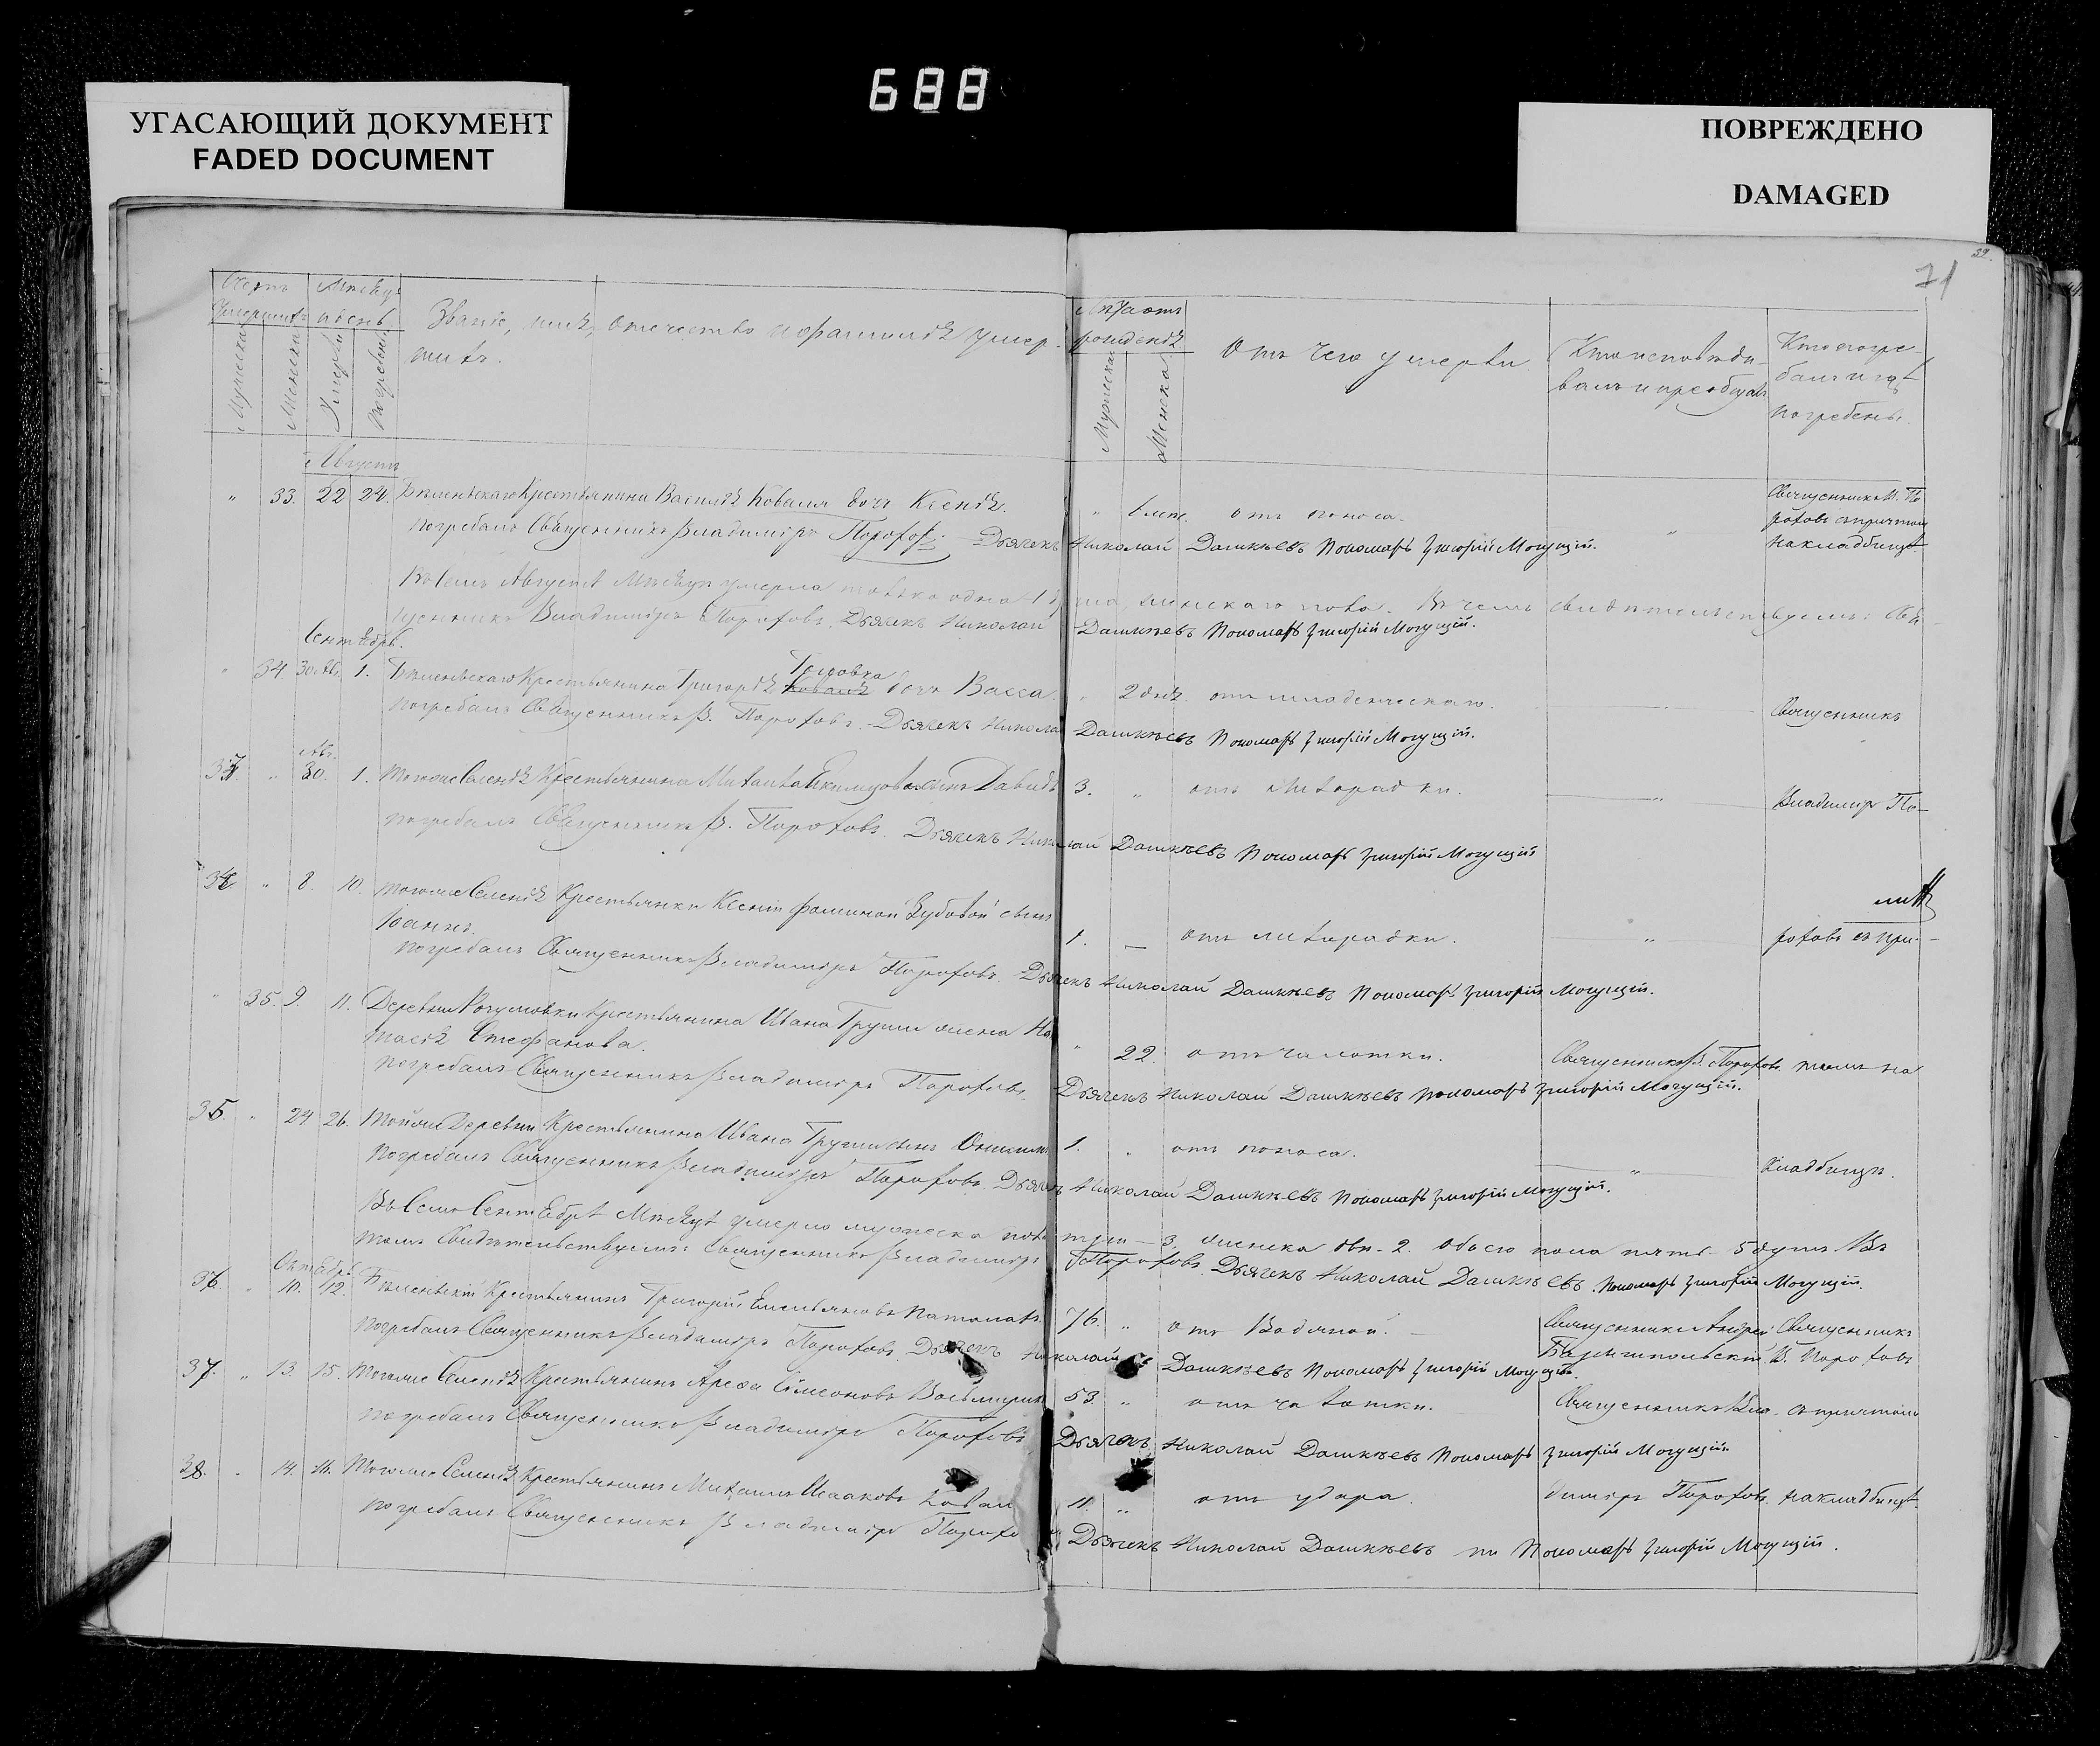 688
УГАСАЮЩИЙ ДОКУМЕНТ
FADED DOCUMENT
ПОВРЕЖДЕНО
DAMAGED
39.
71
Звание, имя, отечество и фамилия умер-
шихъ.
Мужеска
Женска
Умерли
Погребены
Лѣта отъ
рожденія
Мужеска
Женска
Отъ чего умерли
Кто исповѣды-
валъ и преобщалъ
Кто погре-
балъ и гдѣ
погребены.
Августъ
" 33. 22 24. Крестьянина Василія Коваля дочь Ксенія. " 6 лѣт. отъ поноса. " Священникъ В. По-
роховъ съ причтомъ
на кладбищѣ
погребалъ Священникъ Владиміръ Пороховъ. Дьячекъ Николай Дашкѣевъ Пономарь Григорій Могущій.
Въ семъ Августѣ Мѣсяцѣ умерла только одна 1 душа женскаго пола. Въ чемъ свидѣтельствуемъ: Свя-
щенникъ Владиміръ Пороховъ. Дьячекъ Николай Дашкѣевъ Пономарь Григорій Могущій.
Сентябрь.
" 34. 30 Авг. 1. Крестьянина Григорія Коваля дочь Васса. " 2 дня. отъ младенческаго. Священникъ
погребалъ Священникъ В. Пороховъ. Дьячекъ Николай Дашкѣевъ Пономарь Григорій Могущій.
Авг.
33. " 30. 1. Тогоже Селенія Крестьянина Михаила сынъ Давидъ 3. " отъ лихорадки. " Владимиръ По-
погребалъ Священникъ В. Пороховъ. Дьячекъ Николай Дашкѣевъ Пономарь Григорій Могущій
34. " 8. 10. Тогоже Селенія Крестьянки Ксеніи Фоминой Зубовой сынъ
Іоаннъ. 1. — отъ лихорадки. " роховъ съ при-
погребалъ Священникъ Владиміръ Пороховъ. Дьячекъ Николай Дашкѣевъ Пономарь Григорій Могущій.
" 35. 9. 11. Деревни Крестьянина Ивана Груши жена На-
тасія Стефанова. " 22. отъ чахотки. Священникъ В. Пороховъ. томъ на
погребалъ Священникъ Владиміръ Пороховъ. Дьячекъ Николай Дашкѣевъ Пономарь Григорій Могущій.
35. " 24 26. Тойже Деревни Крестьянина Ивана Груши сынъ 1. " отъ поноса. " кладбищѣ.
погребалъ Священникъ Владиміръ Пороховъ. Дьячекъ Николай Дашкѣевъ Пономарь Григорій Могущій.
Въ Семъ Сентябрѣ Мѣсяцѣ умерло мужеска пола три — 3, женска двѣ - 2. Обоего пола пять - 5 душъ. Въ
томъ Свидѣтельствуемъ: Священникъ Владиміръ Пороховъ. Дьячекъ Николай Дашкѣевъ. Пономарь Григорій Могущій.
Октябрь
36. " 10. 12. Крестьянинъ Григорій Емельяновъ 76. " отъ Водяной. Священникъ Андрей Священникъ
В. Пороховъ
погребалъ Священникъ Владиміръ Пороховъ Дьячекъ Николай Дашкѣевъ Пономарь Григорій Могущій.
37. " 13. 15. Тогоже Селенія Крестьянинъ Симеоновъ 53. " отъ чахотки. Священникъ Вла- съ причтомъ
погребалъ Священникъ Владиміръ Пороховъ Дьячекъ Николай Дашкѣевъ Пономарь Григорій Могущій
38. " 14. 16. Тогоже Селенія Крестьянинъ Михаилъ Исааковъ Ковал 11. " отъ удара. диміръ Пороховъ. на кладбищѣ.
погребалъ Священникъ Владиміръ Порохо Дьячекъ Николай Дашкѣевъ Пономарь Григорій Могущій.